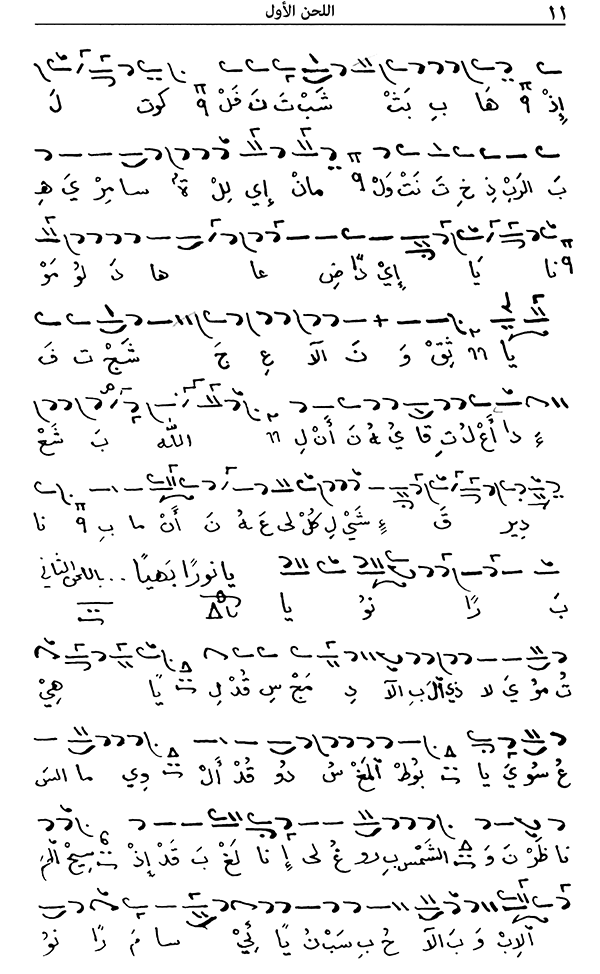 ١١ اللحن الأول
إِذْ هَا بِ بَتْ شَبْ تَ تَ فَلْ كوت لَ
بَ الرَبْ ذِ خِ تَ نَتْ وَلْ مانْ إِي لِلْ ةُ سا مِرْ يَ هِ
نا يَا إِيْ دّا ضِ عا ها دَ لُو مَوْ
يَا ثِقْ وَ تَ الآ عِ جَ شَجْ ت فَ
ءِ دا أَعْ لْ تِ قا يُ هُ نَ أَنْ لِ اللّٰه بَ شَعْ
دِير قَ ءٍ شَيْ لِ كُلْ لى عَ هُ نَ أَنْ ما بِ نا
يا نورًا بَهيًا .. باللحن الثاني
بَ رًا نُو يا
تُ مُوْ يَ لا ذي أَلْ رَبِ الآ دِ مَجْ سِ قُدْ لِ يًا هِيْ
عُ سُو يَ يا بُوطْ المَغْ سُ دُو قُدْ أَلْ دِي ما السَ
نا ظَرْ نَ وَ الشَمْسِ بِ رو غُ لى إِ نا لَغْ بَ قَدْ إِذْ سِيحْ المَ
آلإِبْ وَ بَ الآ حُ بِ سَبْ نُ يًا ئِيْ سا مَ رًا نُو